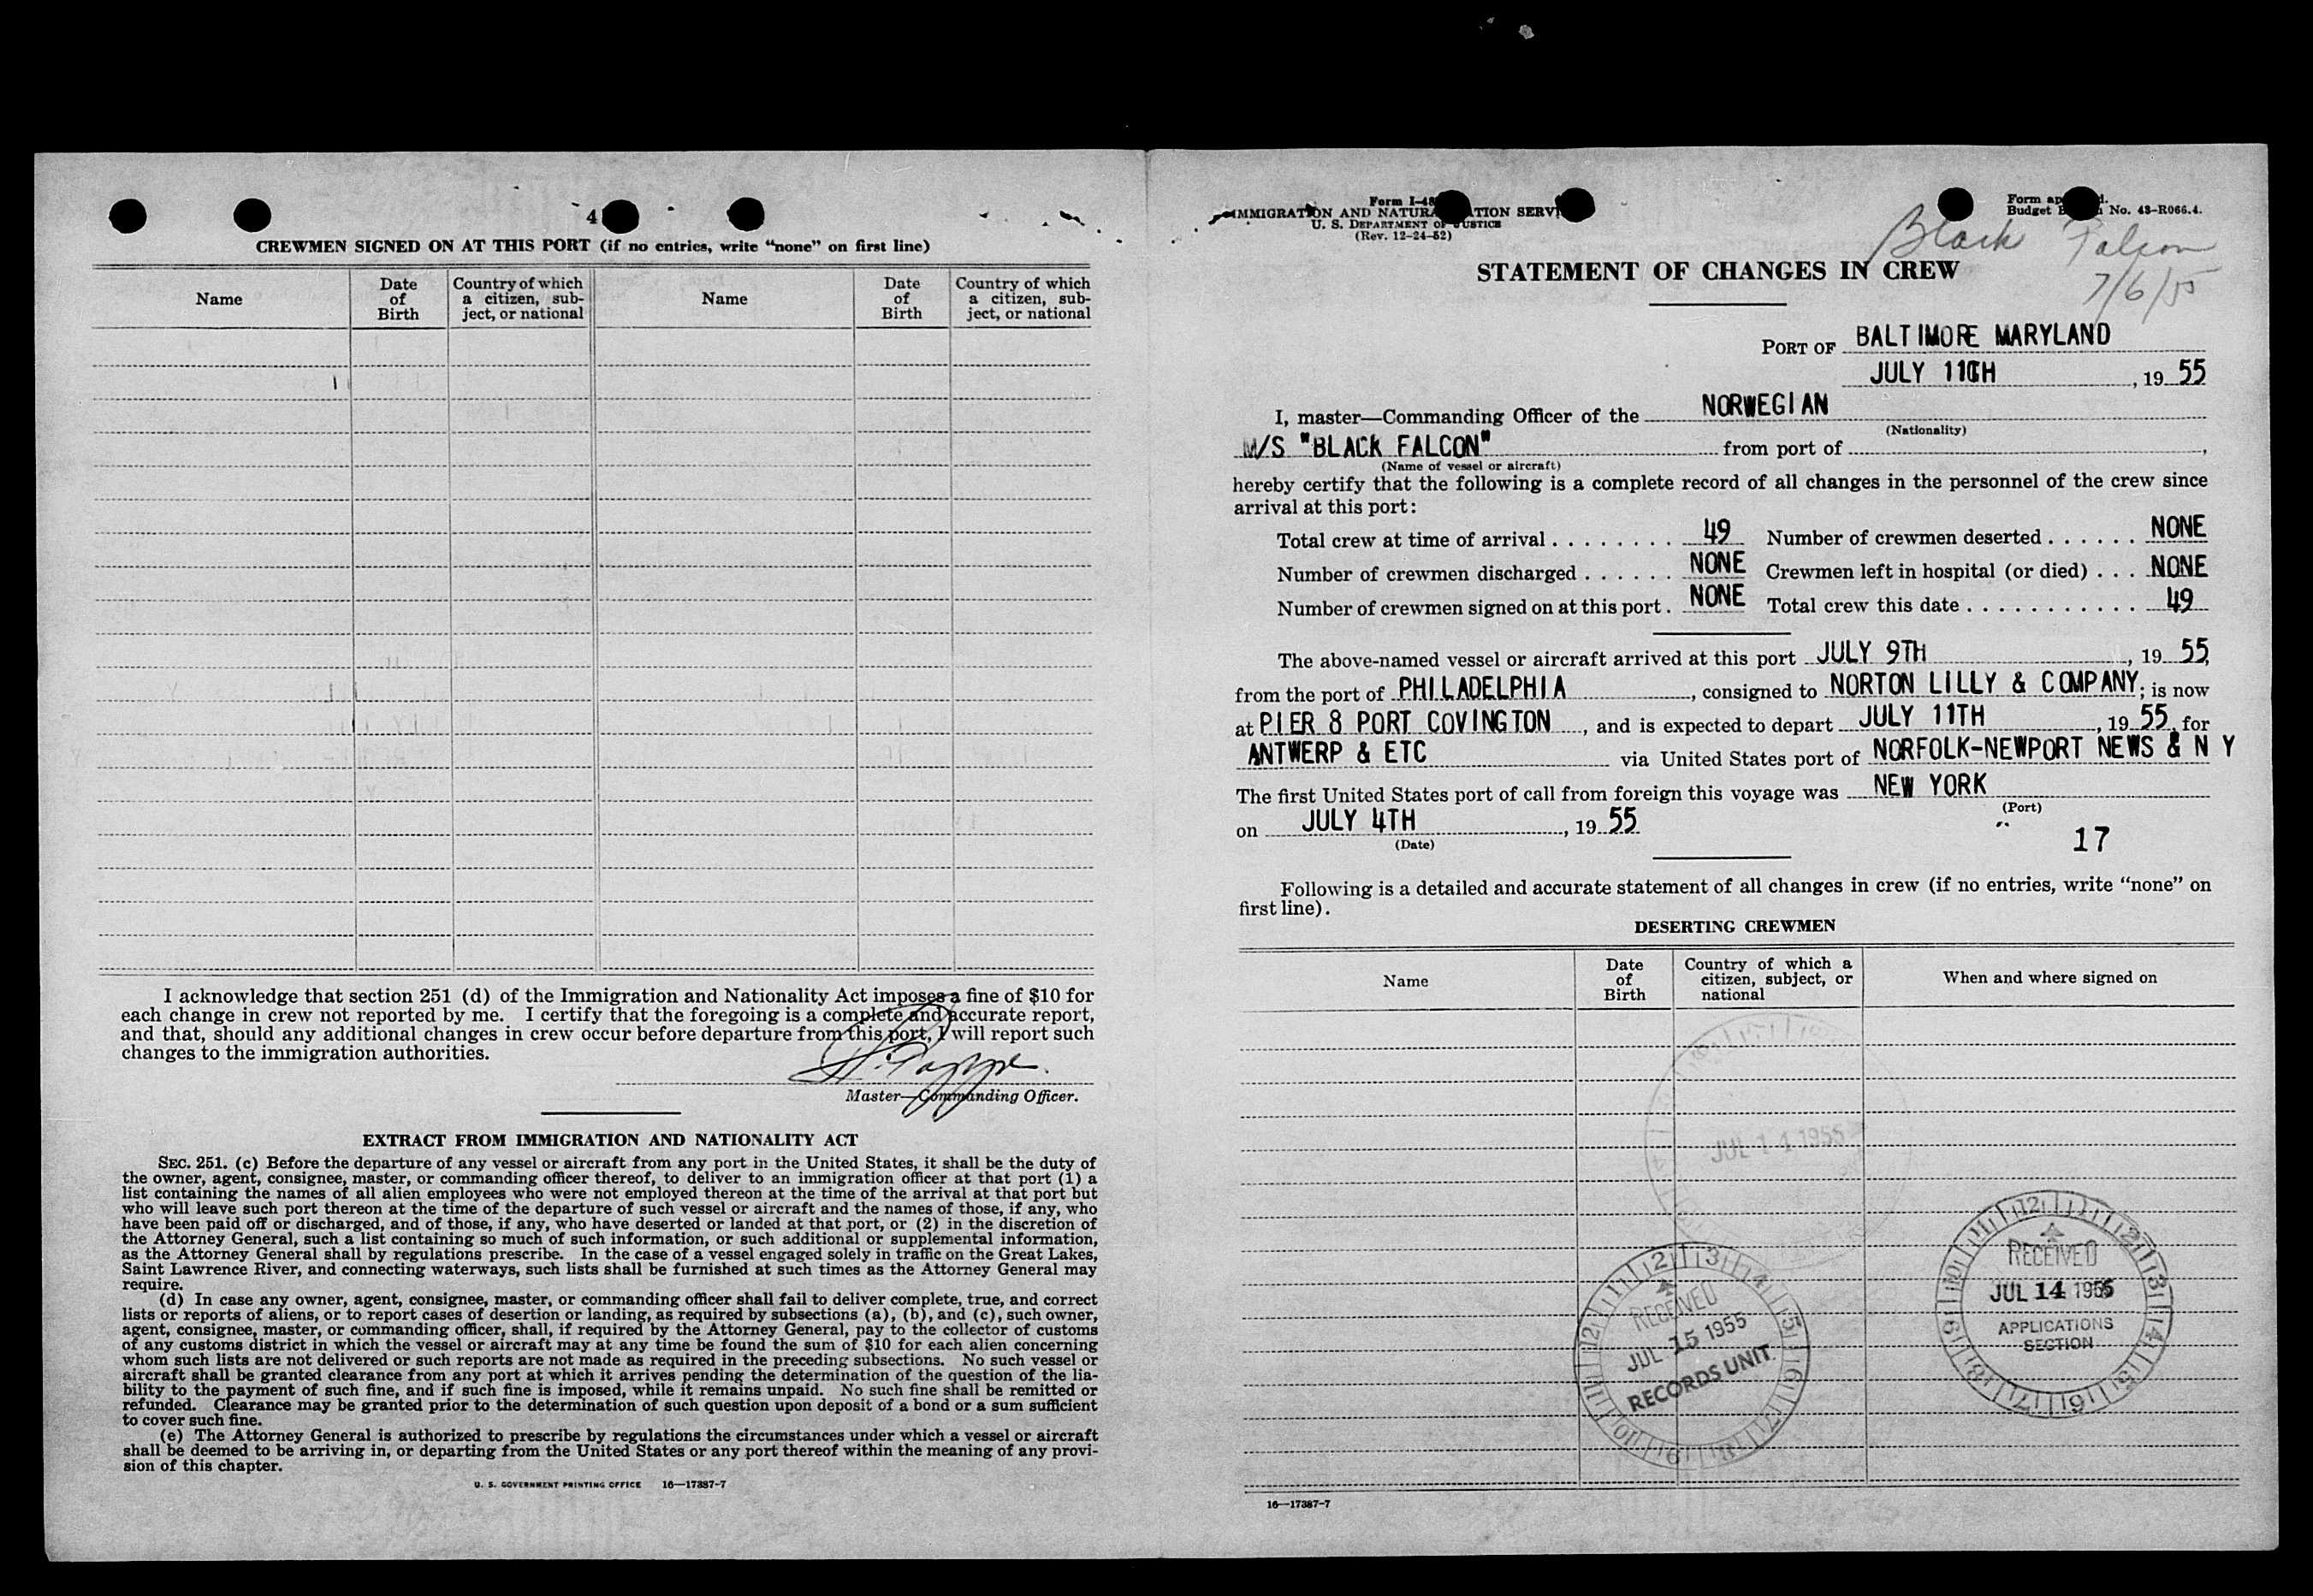 4
CREWMEN SIGNED ON AT THIS PORT (if no entries, write “none” on first line)
Name
Date of Birth
Country of which a citizen, sub-ject, or national
Name
Date of Birth
Country of which a citizen, sub-ject, or national
I acknowledge that section 251 (d) of the Immigration and Nationality Act imposes a fine of $10 for
each change in crew not reported by me. I certify that the foregoing is a complete and accurate report,
and that, should any additional changes in crew occur before departure from this port, I will report such
changes to the immigration authorities.
Master—Commanding Officer.
EXTRACT FROM IMMIGRATION AND NATIONALITY ACT
SEC. 251. (c) Before the departure of any vessel or aircraft from any port in the United States, it shall be the duty of
the owner, agent, consignee, master, or commanding officer thereof, to deliver to an immigration officer at that port (1) a
list containing the names of all alien employees who were not employed thereon at the time of the arrival at that port but
who will leave such port thereon at the time of the departure of such vessel or aircraft and the names of those, if any, who
have been paid off or discharged, and of those, if any, who have deserted or landed at that port, or (2) in the discretion of
the Attorney General, such a list containing so much of such information, or such additional or supplemental information,
as the Attorney General shall by regulations prescribe. In the case of a vessel engaged solely in traffic on the Great Lakes,
Saint Lawrence River, and connecting waterways, such lists shall be furnished at such times as the Attorney General may
require.
(d) In case any owner, agent, consignee, master, or commanding officer shall fail to deliver complete, true, and correct
lists or reports of aliens, or to report cases of desertion or landing, as required by subsections (a), (b), and (c), such owner,
agent, consignee, master, or commanding officer, shall, if required by the Attorney General, pay to the collector of customs
of any customs district in which the vessel or aircraft may at any time be found the sum of $10 for each alien concerning
whom such lists are not delivered or such reports are not made as required in the preceding subsections. No such vessel or
aircraft shall be granted clearance from any port at which it arrives pending the determination of the question of the lia-
bility to the payment of such fine, and if such fine is imposed, while it remains unpaid. No such fine shall be remitted or
refunded. Clearance may be granted prior to the determination of such question upon deposit of a bond or a sum sufficient
to cover such fine.
(e) The Attorney General is authorized to prescribe by regulations the circumstances under which a vessel or aircraft
shall be deemed to be arriving in, or departing from the United States or any port thereof within the meaning of any provi-
sion of this chapter.
U. S. GOVERNMENT PRINTING OFFICE 16—17387-7
Form I-48
IMMIGRATION AND NATURA ATION SERVI
U. S. DEPARTMENT OF JUSTICE
(Rev. 12-24-52)
Form ap d.
Budget B No. 43-R066.4.
Black Falcon
7/6/55
STATEMENT OF CHANGES IN CREW
PORT OF BALTIMORE MARYLAND
JULY 11TH, 19 55
I, master—Commanding Officer of the NORWEGIAN
(Nationality)
M/S "BLACK FALCON" from port of ,
(Name of vessel or aircraft)
hereby certify that the following is a complete record of all changes in the personnel of the crew since
arrival at this port:
Total crew at time of arrival 49 Number of crewmen deserted NONE
Number of crewmen discharged NONE Crewmen left in hospital (or died) NONE
Number of crewmen signed on at this port NONE Total crew this date 49
The above-named vessel or aircraft arrived at this port JULY 9TH, 19 55,
from the port of PHILADELPHIA, consigned to NORTON LILLY & COMPANY; is now
at PIER 8 PORT COVINGTON, and is expected to depart JULY 11TH, 19 55, for
ANTWERP & ETC via United States port of NORFOLK-NEWPORT NEWS & N Y
The first United States port of call from foreign this voyage was NEW YORK
(Port)
on JULY 4TH, 19 55
(Date)
17
Following is a detailed and accurate statement of all changes in crew (if no entries, write “none” on
first line).
DESERTING CREWMEN
Name
Date of Birth
Country of which a citizen, subject, or national
When and where signed on
JUL 14 1955
RECEIVED
JUL 15 1955
RECORDS UNIT
RECEIVED
JUL 14 1955
APPLICATIONS
SECTION
16—17387-7